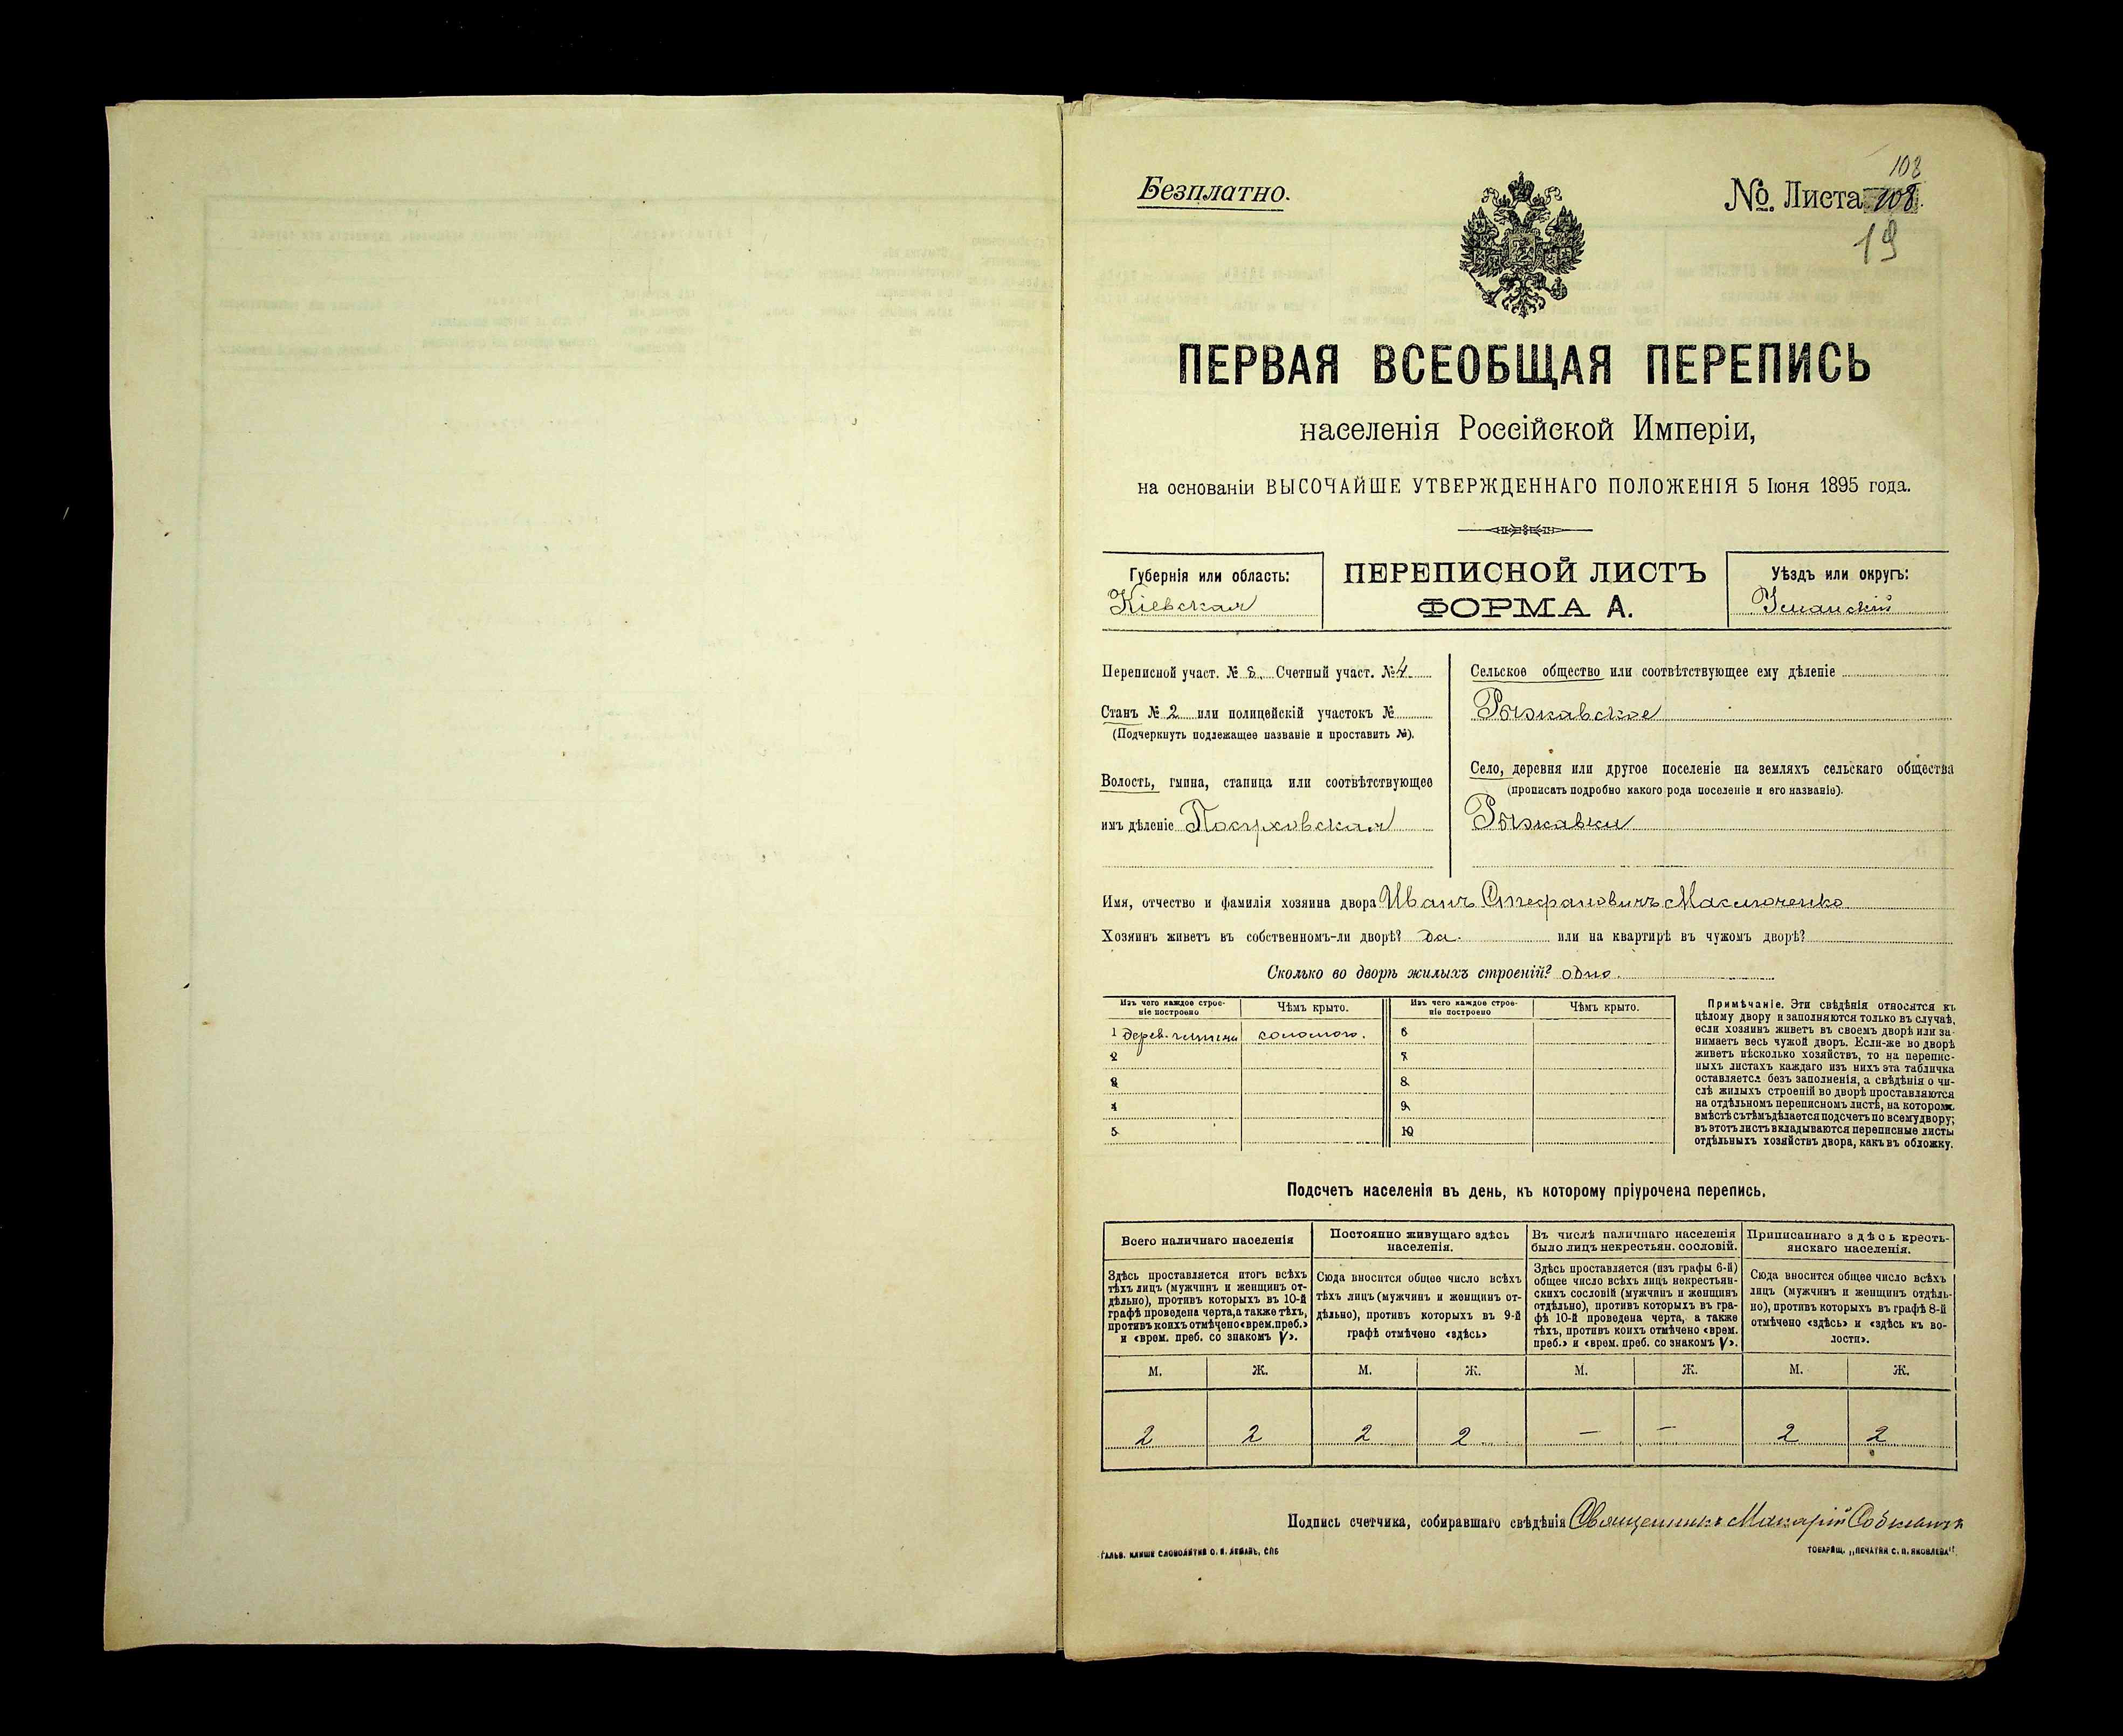 Безплатно.
№ Листа 108.
108
19
ПЕРВАЯ ВСЕОБЩАЯ ПЕРЕПИСЬ
населенія Россійской Имперіи,
на основаніи ВЫСОЧАЙШЕ УТВЕРЖДЕННАГО ПОЛОЖЕНІЯ 5 Іюня 1895 года.
Губернія или область:
Кіевская
ПЕРЕПИСНОЙ ЛИСТЪ
ФОРМА А.
Уѣздъ или округъ:
Уманскій
Переписной участ. № 8. Счетный участ. № 4
Станъ № 2 или полицейскій участокъ №
(Подчеркнуть подлежащее названіе и проставить №).
Волость, гмина, станица или соотвѣтствующее
имъ дѣленіе
Сельское общество или соотвѣтствующее ему дѣленіе
Рыжавское
Село, деревня или другое поселеніе на земляхъ сельскаго общества
(прописать подробно какого рода поселеніе и его названіе).
Рыжавки
Имя, отчество и фамилія хозяина двора Иванъ Стефановичъ
Хозяинъ живетъ въ собственномъ-ли дворѣ? да. или на квартирѣ въ чужомъ дворѣ?
Сколько во дворѣ жилыхъ строеній? одно.
Изъ чего каждое строе-
ніе построено
Чѣмъ крыто.
Изъ чего каждое строе-
ніе построено
Чѣмъ крыто.
1 дерев. соломою. 6
2 7
3 8
4 9
5 10
Примѣчаніе. Эти свѣдѣнія относятся къ
цѣлому двору и заполняются только въ случаѣ,
если хозяинъ живетъ въ своемъ дворѣ или за-
нимаетъ весь чужой дворъ. Если-же во дворѣ
живетъ нѣсколько хозяйствъ, то на перепис-
ныхъ листахъ каждаго изъ нихъ эта табличка
оставляется безъ заполненія, а свѣдѣнія о чи-
слѣ жилыхъ строеній во дворѣ проставляются
на отдѣльномъ переписномъ листѣ, на которомъ
вмѣстѣ съ тѣмъ дѣлается подсчетъ по всему двору;
въ этотъ листъ вкладываются переписные листы
отдѣльныхъ хозяйствъ двора, какъ въ обложку.
Подсчетъ населенія въ день, къ которому пріурочена перепись.
Всего наличнаго населенія
Здѣсь проставляется итогъ всѣхъ
тѣхъ лицъ (мужчинъ и женщинъ от-
дѣльно), противъ которыхъ въ 10-й
графѣ проведена черта, а также тѣхъ,
противъ коихъ отмѣчено «врем. преб.»
и «врем. преб. со знакомъ V».
Постоянно живущаго здѣсь
населенія.
Сюда вносится общее число всѣхъ
тѣхъ лицъ (мужчинъ и женщинъ от-
дѣльно), противъ которыхъ въ 9-й
графѣ отмѣчено «здѣсь»
Въ числѣ наличнаго населенія
было лицъ некрестьян. сословій.
Здѣсь проставляется (изъ графы 6-й)
общее число всѣхъ лицъ некрестьян-
скихъ сословій (мужчинъ и женщинъ
отдѣльно), противъ которыхъ въ гра-
фѣ 10-й проведена черта, а также
тѣхъ, противъ коихъ отмѣчено «врем.
преб.» и «врем. преб. со знакомъ V».
Приписаннаго здѣсь кресть-
янскаго населенія.
Сюда вносится общее число всѣхъ
лицъ (мужчинъ и женщинъ отдѣль-
но), противъ которыхъ въ графѣ 8-й
отмѣчено «здѣсь» и «здѣсь къ во-
лости».
М. Ж. М. Ж. М. Ж. М. Ж.
2 2 2 2 — — 2 2
Подпись счетчика, собиравшаго свѣдѣнія Священникъ Макарій
ГАЛЬВ. КЛИШЕ СЛОВОЛИТНИ О. И. ЛЕМАНЪ, СПБ
ТОВАРИЩ. „ПЕЧАТНЯ С. П. ЯКОВЛЕВА"